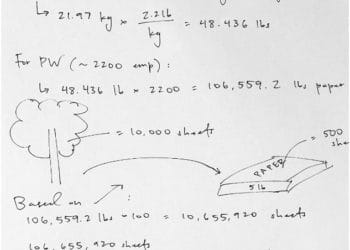 ↳ 21.97 kg × 2.2 lb / kg = 48.436 lbs
For PW (~ 2200 emp) :
↳ 48.436 lb × 2200 = 106,559.2 lbs paper
= 10,000 sheets
= 500
PAPER
5 lb
Based on
106,559.2 lbs × 100 = 10,655,920 sheets